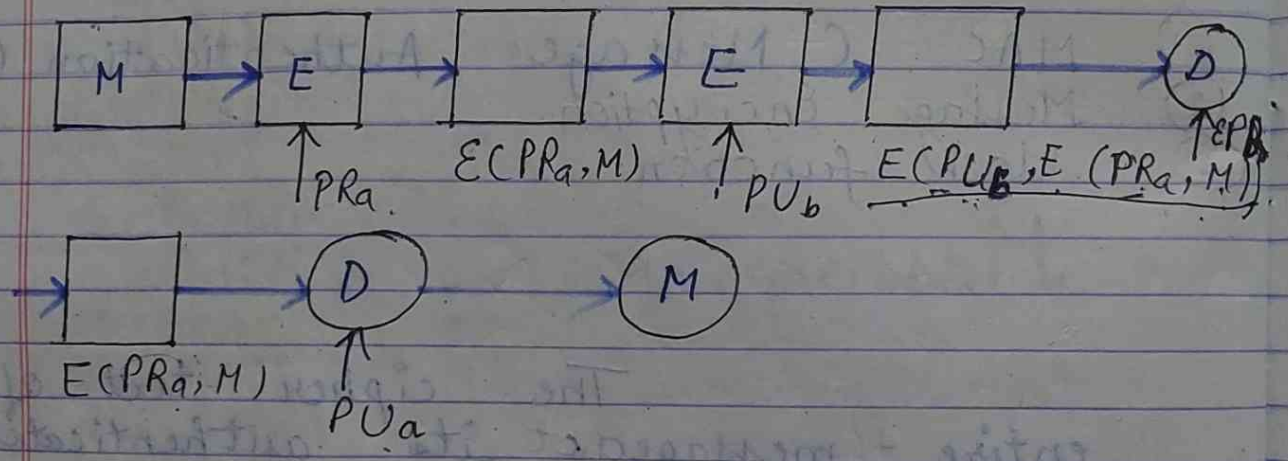 M E E D
PRa. E(PRa,M) PUb E(PUb,E (PRa,M))
D M
E(PRa,M)
PUa